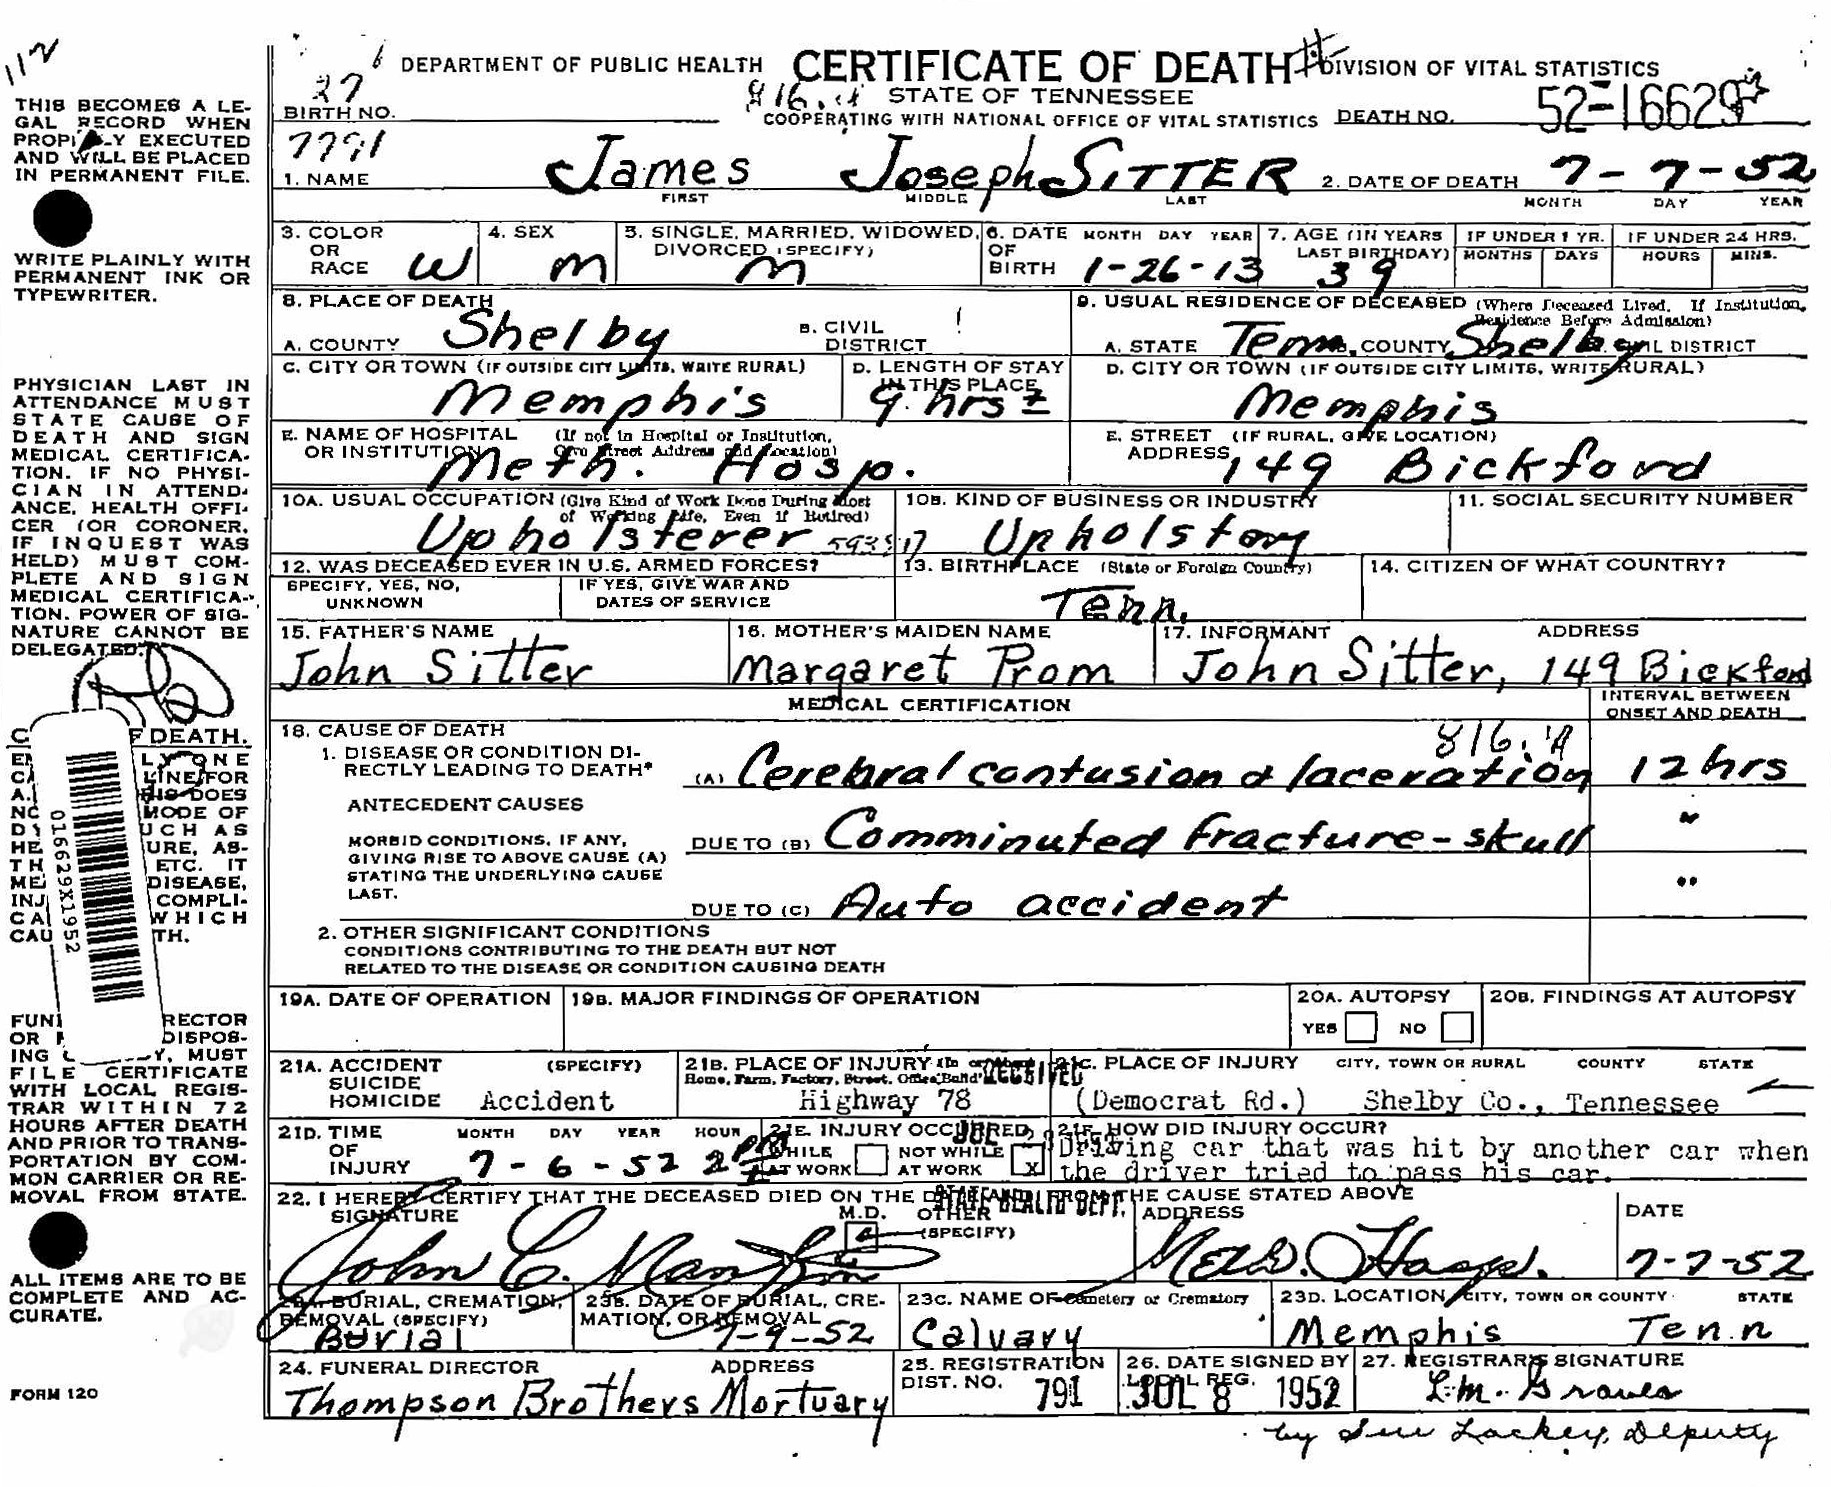 112
27
DEPARTMENT OF PUBLIC HEALTH CERTIFICATE OF DEATH DIVISION OF VITAL STATISTICS
STATE OF TENNESSEE
BIRTH NO. COOPERATING WITH NATIONAL OFFICE OF VITAL STATISTICS DEATH NO. 52-16629
7791
1. NAME James Joseph SITTER 2. DATE OF DEATH 7-7-52
FIRST MIDDLE LAST MONTH DAY YEAR
3. COLOR OR RACE W
4. SEX M
5. SINGLE, MARRIED, WIDOWED, DIVORCED (SPECIFY) M
6. DATE OF BIRTH MONTH DAY YEAR 1-26-13
7. AGE (IN YEARS LAST BIRTHDAY) 39
IF UNDER 1 YR. MONTHS DAYS
IF UNDER 24 HRS. HOURS MINS.
8. PLACE OF DEATH
A. COUNTY Shelby
B. CIVIL DISTRICT
9. USUAL RESIDENCE OF DECEASED (Where Deceased Lived. If Institution, Residence Before Admission)
A. STATE Tenn. B. COUNTY Shelby CIVIL DISTRICT
C. CITY OR TOWN (IF OUTSIDE CITY LIMITS, WRITE RURAL) Memphis
D. LENGTH OF STAY IN THIS PLACE 9 hrs ±
D. CITY OR TOWN (IF OUTSIDE CITY LIMITS, WRITE RURAL) Memphis
E. NAME OF HOSPITAL OR INSTITUTION (If not in Hospital or Institution, Give Street Address and Location) Meth. Hosp.
E. STREET ADDRESS (IF RURAL, GIVE LOCATION) 149 Bickford
10A. USUAL OCCUPATION (Give Kind of Work Done During Most of Working Life, Even if Retired) Upholsterer
10B. KIND OF BUSINESS OR INDUSTRY Upholstory
11. SOCIAL SECURITY NUMBER
12. WAS DECEASED EVER IN U.S. ARMED FORCES?
SPECIFY, YES, NO, UNKNOWN
IF YES, GIVE WAR AND DATES OF SERVICE
13. BIRTHPLACE (State or Foreign Country) Tenn.
14. CITIZEN OF WHAT COUNTRY?
15. FATHER'S NAME John Sitter
16. MOTHER'S MAIDEN NAME Margaret Prom
17. INFORMANT ADDRESS John Sitter, 149 Bickford
MEDICAL CERTIFICATION
INTERVAL BETWEEN ONSET AND DEATH
18. CAUSE OF DEATH
1. DISEASE OR CONDITION DIRECTLY LEADING TO DEATH* (A) Cerebral contusion & laceration 12 hrs
ANTECEDENT CAUSES
MORBID CONDITIONS, IF ANY, GIVING RISE TO ABOVE CAUSE (A) STATING THE UNDERLYING CAUSE LAST.
DUE TO (B) Comminuted fracture-skull "
DUE TO (C) Auto accident "
2. OTHER SIGNIFICANT CONDITIONS
CONDITIONS CONTRIBUTING TO THE DEATH BUT NOT
RELATED TO THE DISEASE OR CONDITION CAUSING DEATH
19A. DATE OF OPERATION
19B. MAJOR FINDINGS OF OPERATION
20A. AUTOPSY YES NO
20B. FINDINGS AT AUTOPSY
21A. ACCIDENT SUICIDE HOMICIDE (SPECIFY) Accident
21B. PLACE OF INJURY Home, Farm, Factory, Street, Highway 78
RECEIVED
21C. PLACE OF INJURY CITY, TOWN OR RURAL COUNTY STATE
(Democrat Rd.) Shelby Co., Tennessee
21D. TIME OF INJURY MONTH DAY YEAR HOUR 7-6-52 2 PM
21E. INJURY OCCURRED WHILE AT WORK NOT WHILE AT WORK X
21F. HOW DID INJURY OCCUR?
Driving car that was hit by another car when
the driver tried to pass his car.
22. I HEREBY CERTIFY THAT THE DECEASED DIED ON THE DATE AND FROM THE CAUSE STATED ABOVE
STATE HEALTH DEPT.
SIGNATURE M.D. OTHER (SPECIFY) ADDRESS DATE
John C. 7-7-52
23A. BURIAL, CREMATION, REMOVAL (SPECIFY) Burial
23B. DATE OF BURIAL, CREMATION, OR REMOVAL 7-9-52
23C. NAME OF Cemetery or Crematory Calvary
23D. LOCATION CITY, TOWN OR COUNTY STATE Memphis Tenn
24. FUNERAL DIRECTOR ADDRESS Thompson Brothers Mortuary
25. REGISTRATION DIST. NO. 791
26. DATE SIGNED BY LOCAL REG. JUL 8 1952
27. REGISTRAR'S SIGNATURE L.M. Graves
by Sue Lackey, Deputy
THIS BECOMES A LE-
GAL RECORD WHEN
PROPERLY EXECUTED
AND WILL BE PLACED
IN PERMANENT FILE.
WRITE PLAINLY WITH
PERMANENT INK OR
TYPEWRITER.
PHYSICIAN LAST IN
ATTENDANCE MUST
STATE CAUSE OF
DEATH AND SIGN
MEDICAL CERTIFICA-
TION. IF NO PHYSI-
CIAN IN ATTEND-
ANCE, HEALTH OFFI-
CER (OR CORONER,
IF INQUEST WAS
HELD) MUST COM-
PLETE AND SIGN
MEDICAL CERTIFICA-
TION. POWER OF SIG-
NATURE CANNOT BE
DELEGATED.
OF DEATH.
016629X1952
FILE CERTIFICATE
WITH LOCAL REGIS-
TRAR WITHIN 72
HOURS AFTER DEATH
AND PRIOR TO TRANS-
PORTATION BY COM-
MON CARRIER OR RE-
MOVAL FROM STATE.
ALL ITEMS ARE TO BE
COMPLETE AND AC-
CURATE.
FORM 120